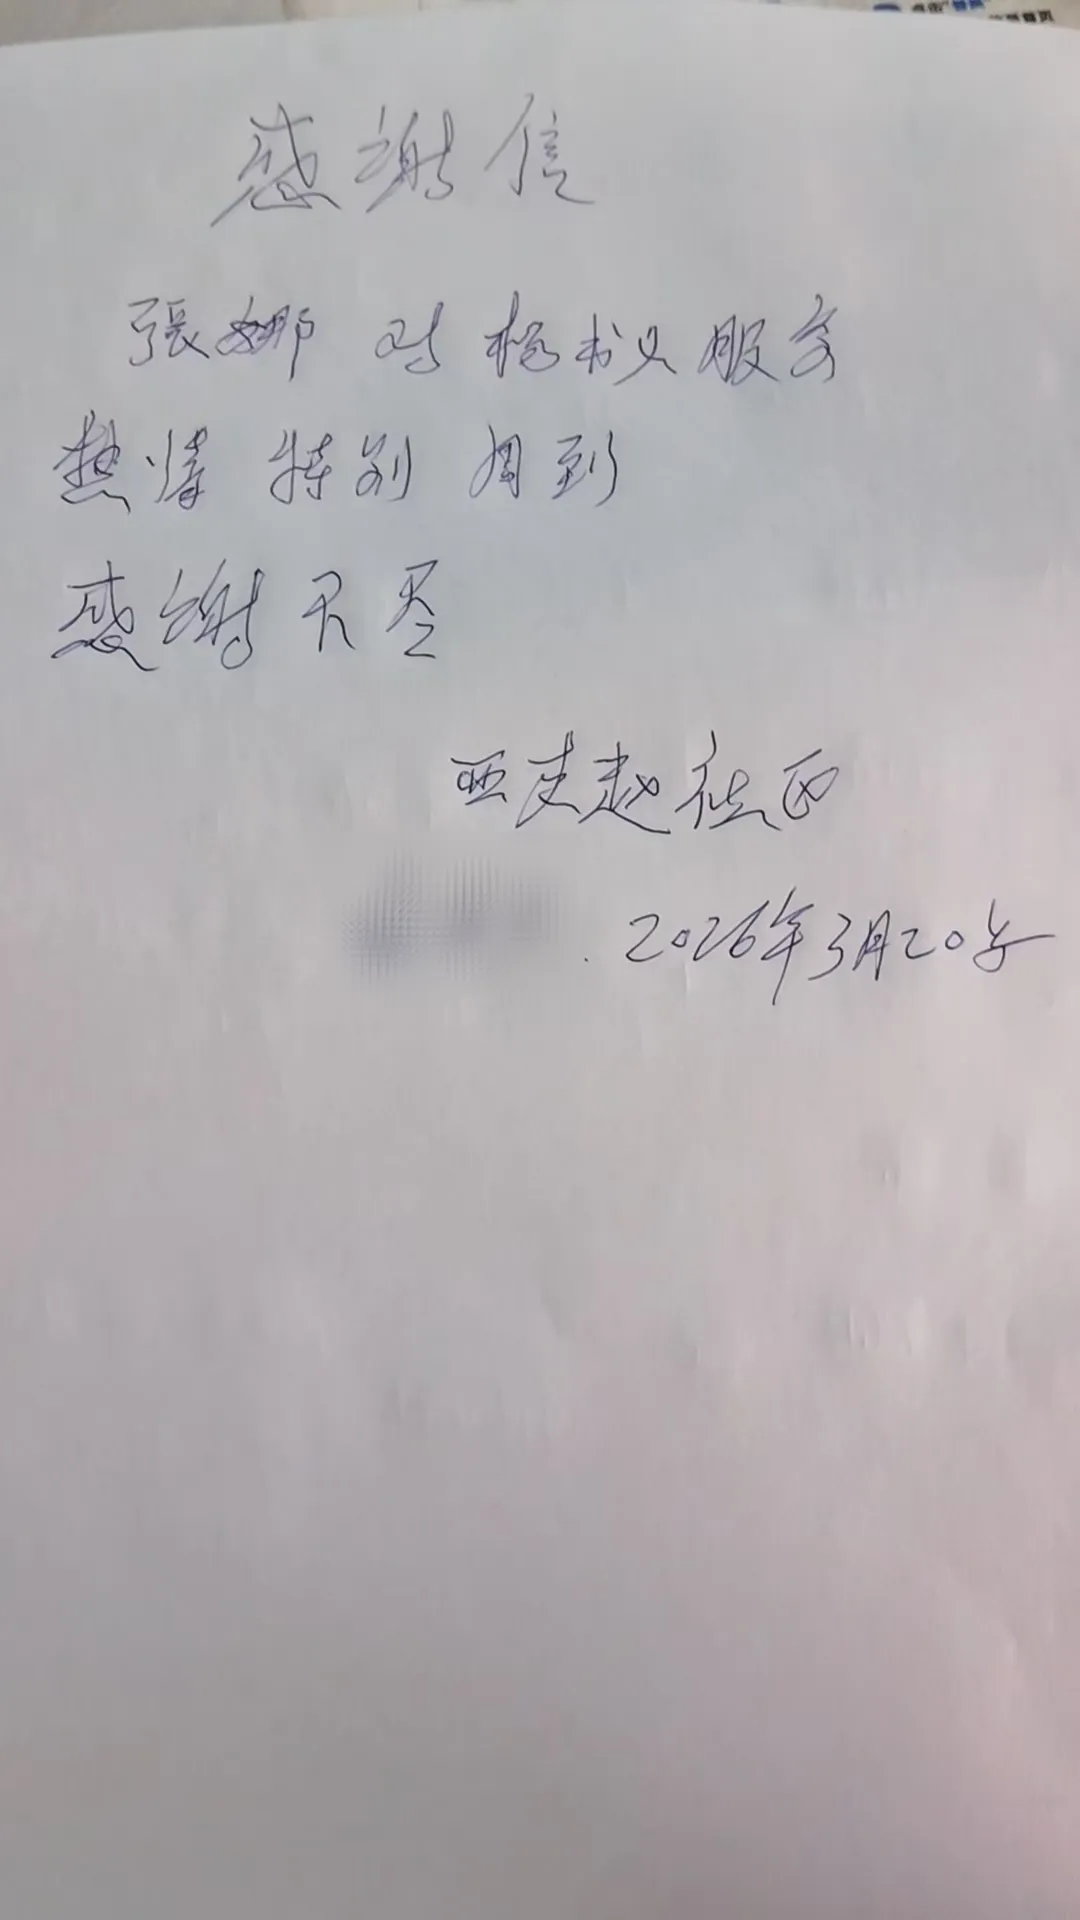 感谢信
張娜 对 杨书义 服务
热情 特别 周到
感谢不尽
西吏赵社区
2026年3月20号